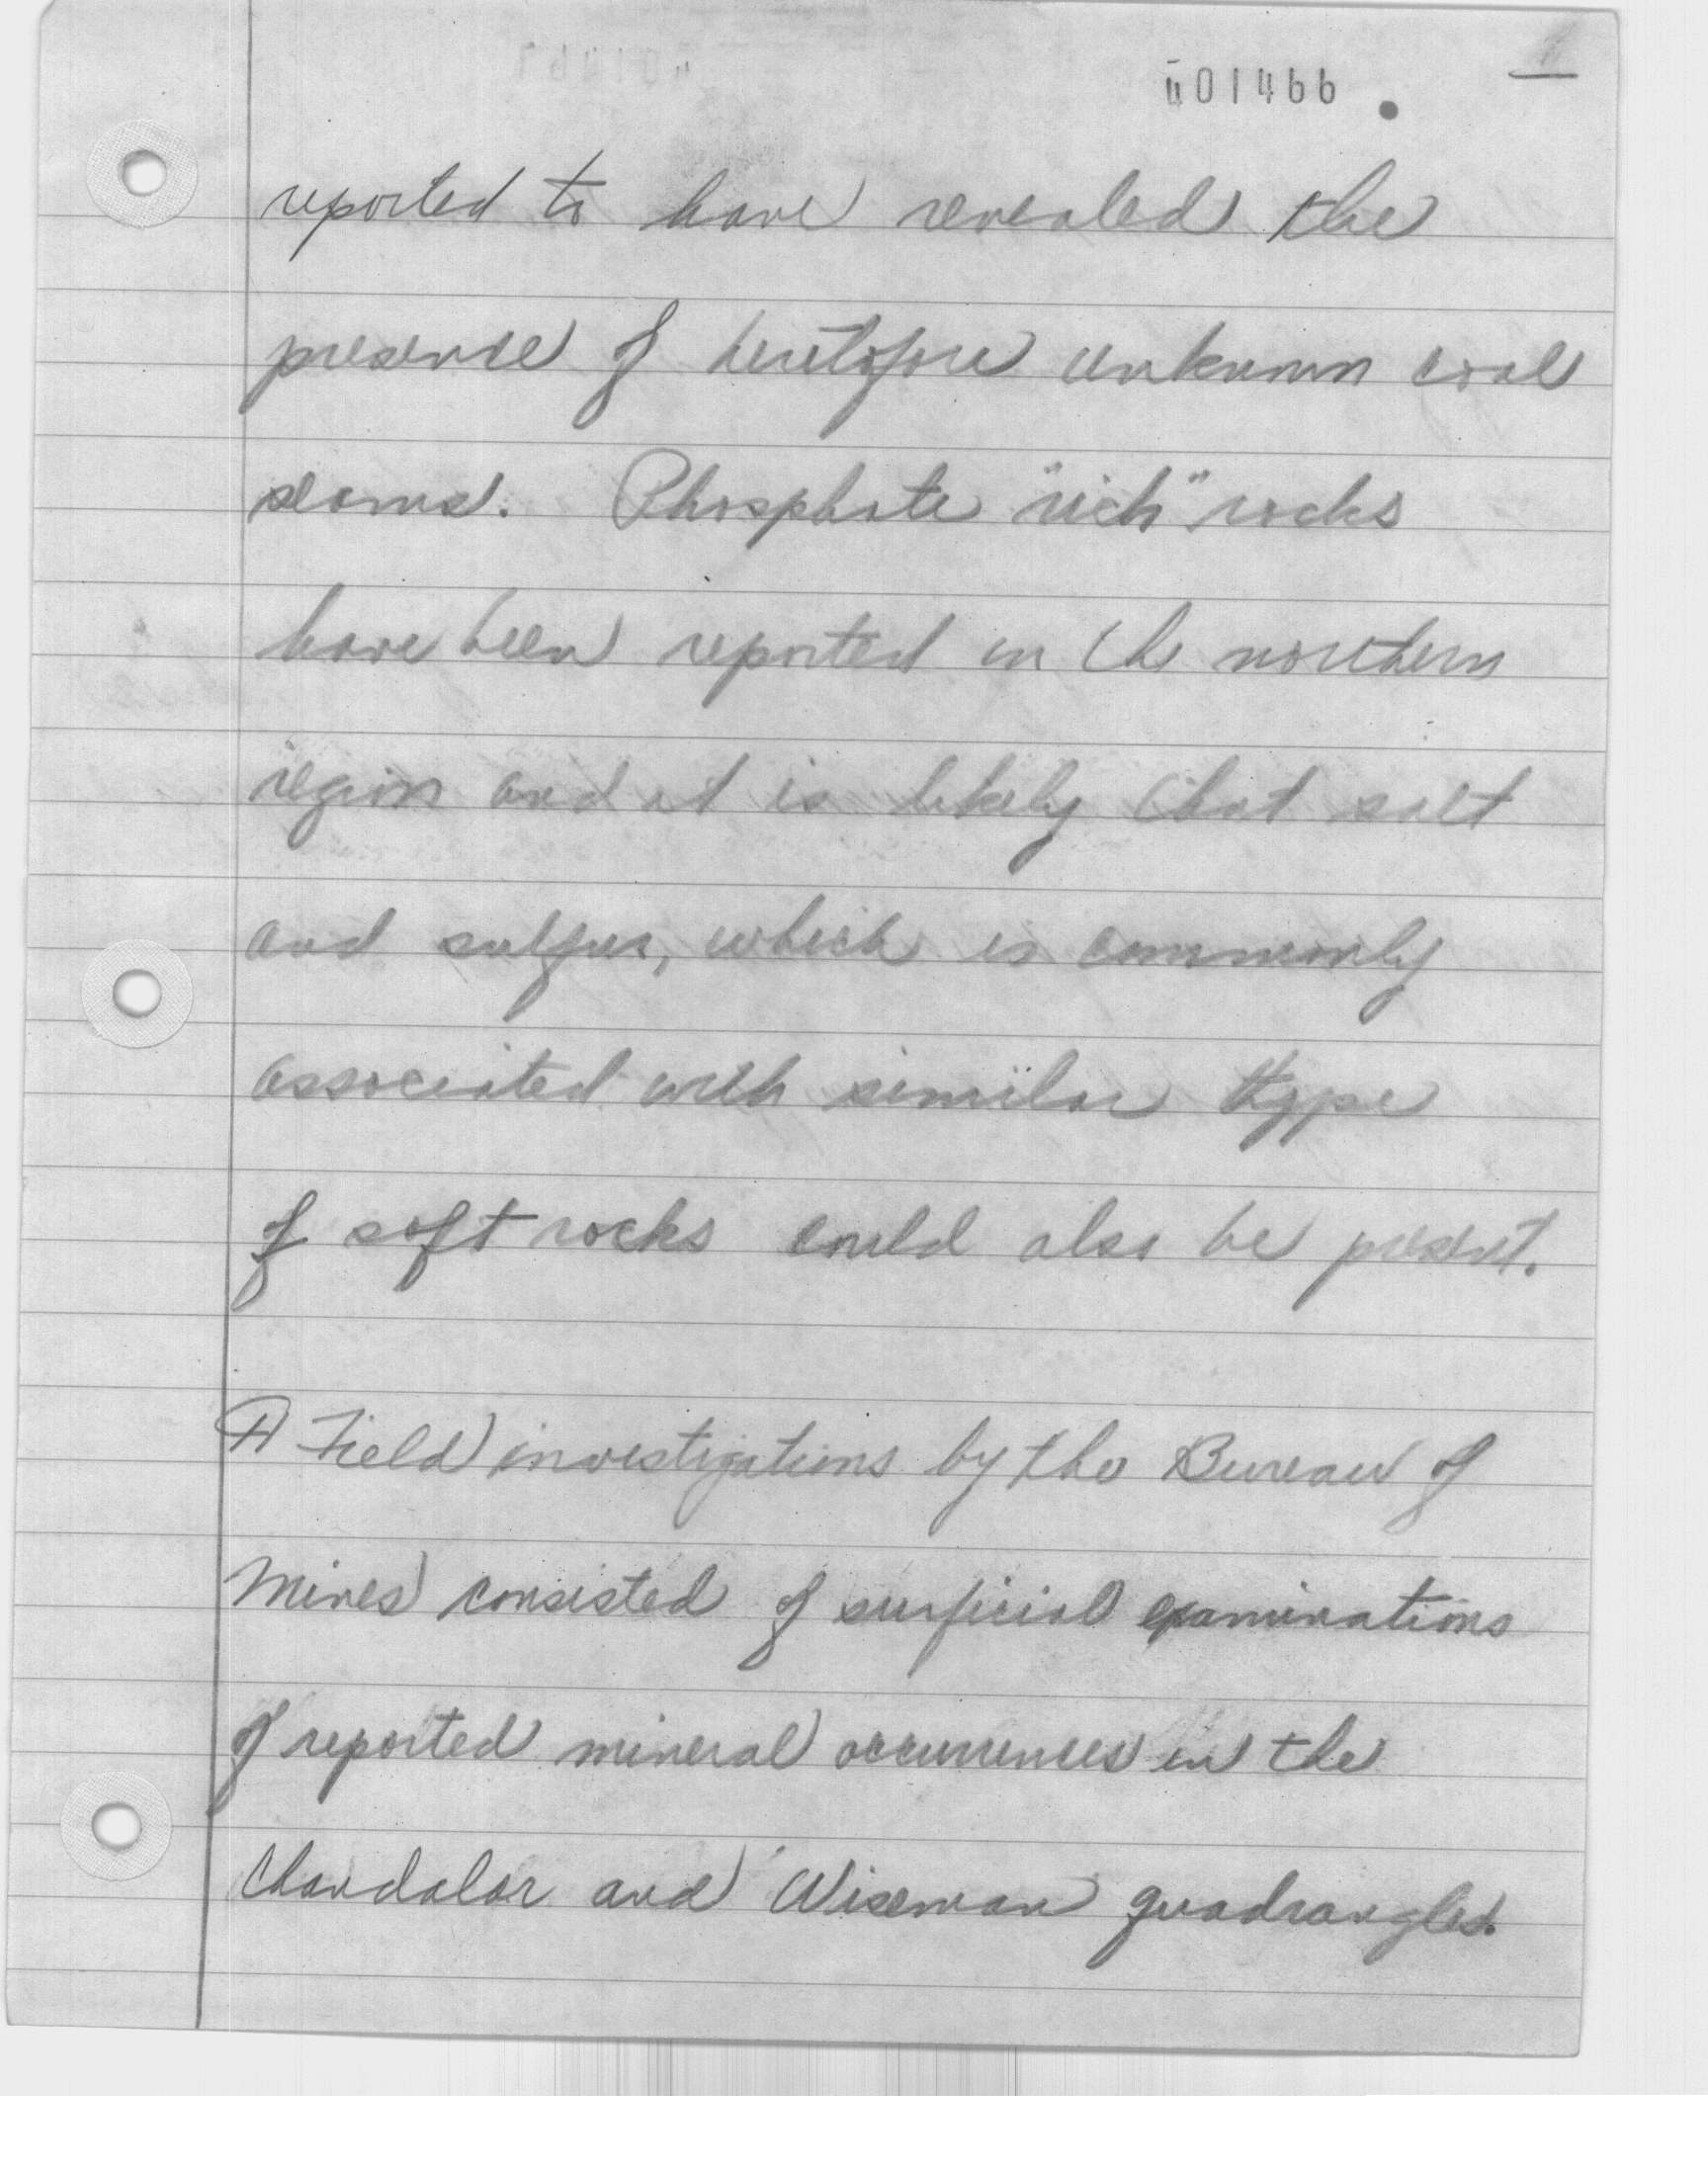 001466
reported to have revealed the
presence of heretofore unknown coal
seams. Phosphate "rich" rocks
have been reported in the northern
region and it is likely that salt
and sulfur, which is commonly
associated with similar type
of soft rocks could also be present.
Field investigations by the Bureau of
Mines consisted of surficial examinations
of reported mineral occurrences in the
Chandalar and Wiseman quadrangles.